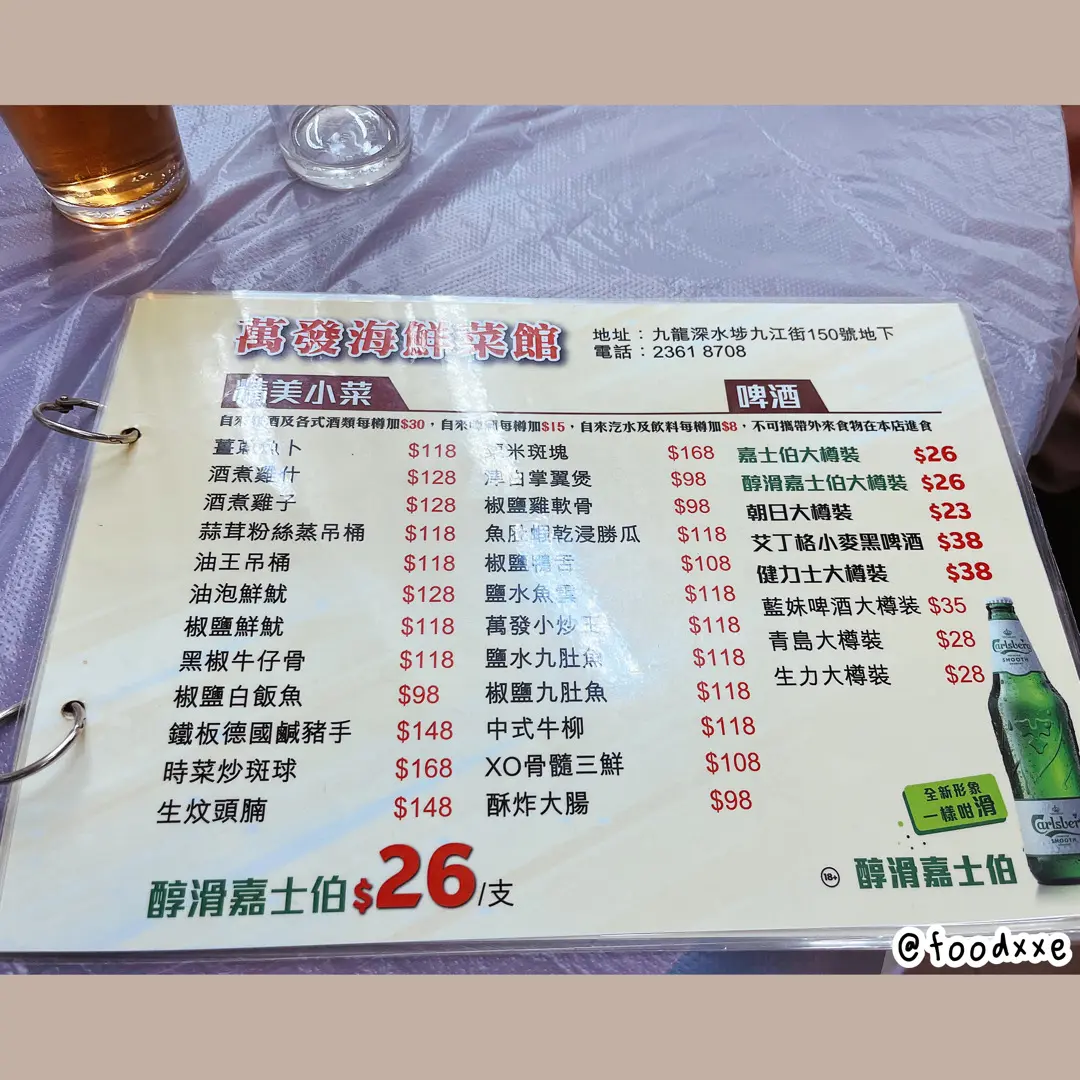 萬發海鮮菜館
地址：九龍深水埗九江街150號地下
電話：2361 8708
精美小菜
啤酒
自來紅酒及各式酒類每樽加$30，自來啤酒每樽加$15，自來汽水及飲料每樽加$8，不可攜帶外來食物在本店進食
薑蔥魚卜 $118
酒煮雞什 $128
酒煮雞子 $128
蒜茸粉絲蒸吊桶 $118
油王吊桶 $118
油泡鮮魷 $128
椒鹽鮮魷 $118
黑椒牛仔骨 $118
椒鹽白飯魚 $98
鐵板德國鹹豬手 $148
時菜炒斑球 $168
生炆頭腩 $148
米斑塊 $168
津白掌翼煲 $98
椒鹽雞軟骨 $98
魚肚蝦乾浸勝瓜 $118
椒鹽鴨舌 $108
鹽水魚雲 $118
萬發小炒王 $118
鹽水九肚魚 $118
椒鹽九肚魚 $118
中式牛柳 $118
XO骨髓三鮮 $108
酥炸大腸 $98
嘉士伯大樽裝 $26
醇滑嘉士伯大樽裝 $26
朝日大樽裝 $23
艾丁格小麥黑啤酒 $38
健力士大樽裝 $38
藍妹啤酒大樽裝 $35
青島大樽裝 $28
生力大樽裝 $28
Carlsberg
SMOOTH
Carlsberg
SMOOTH
全新形象
一樣咁滑
醇滑嘉士伯$26/支
18+
醇滑嘉士伯
@foodxxe